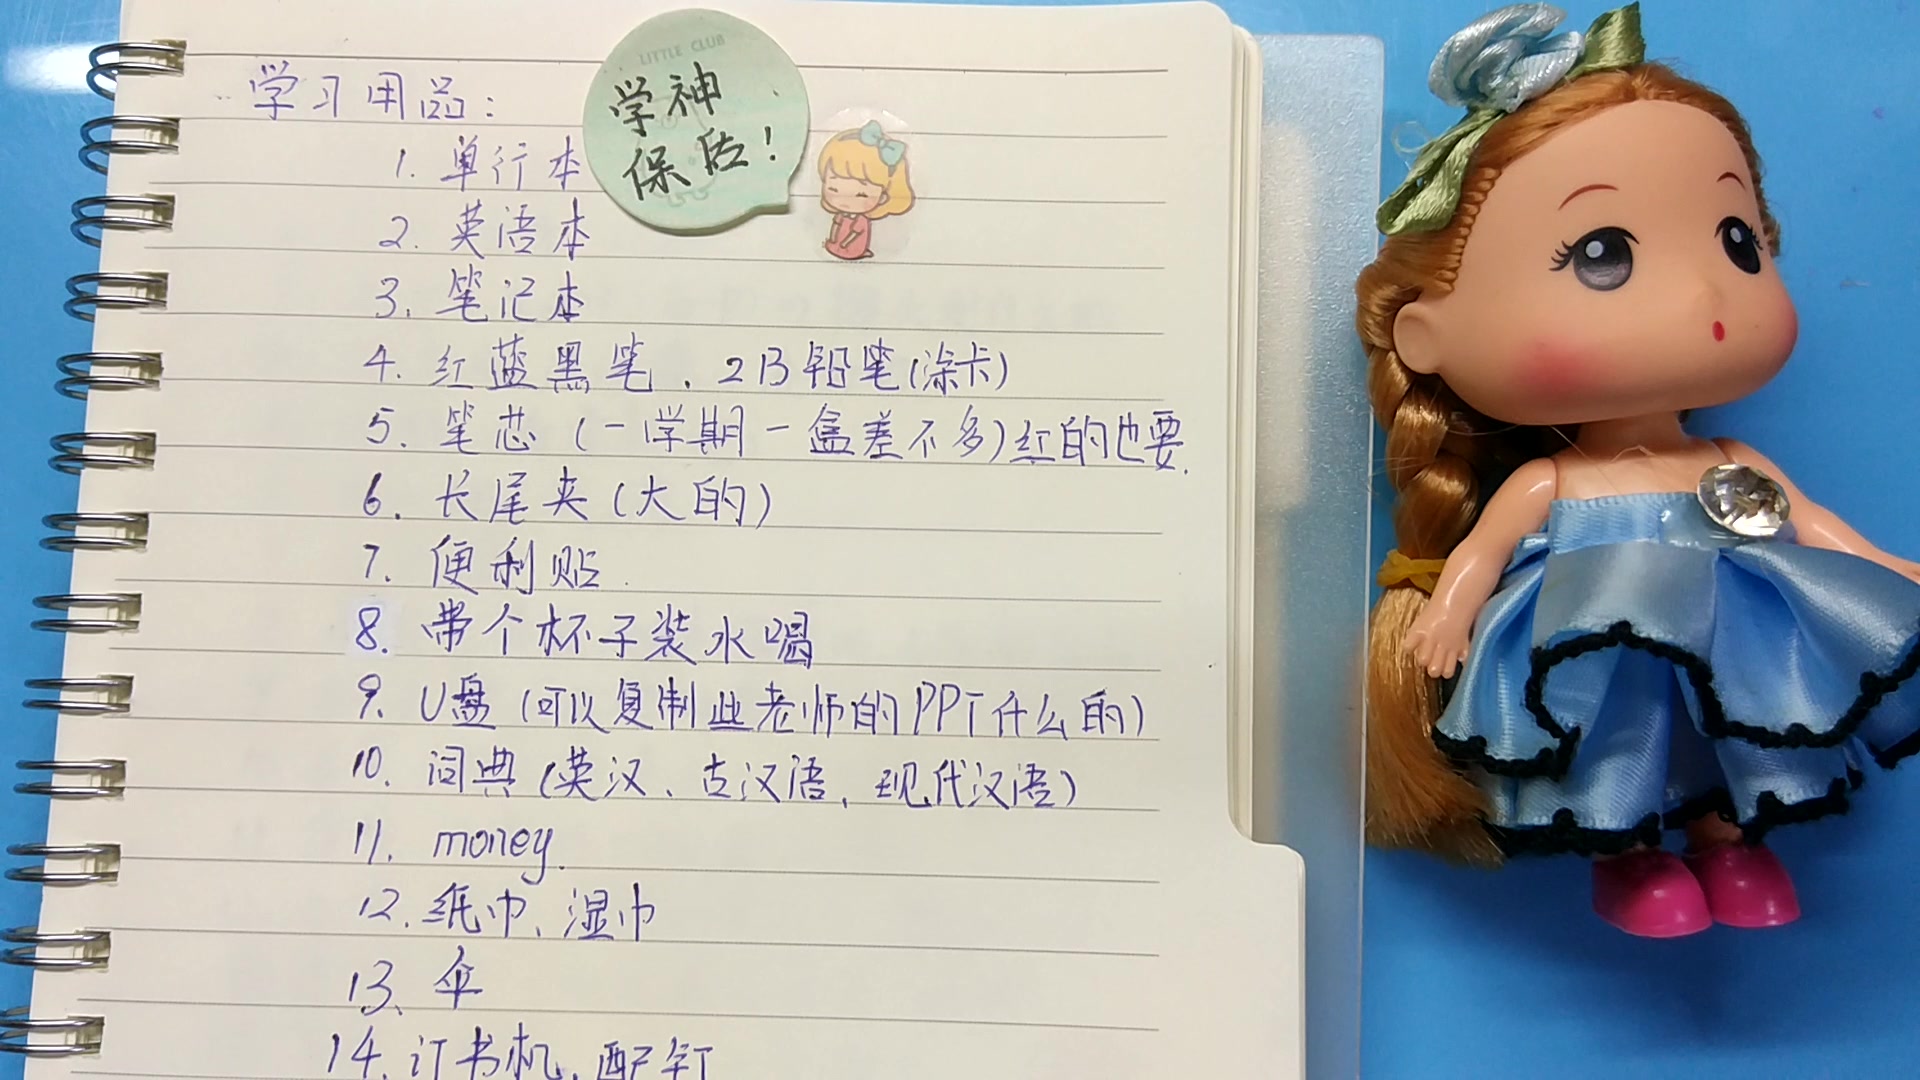 学习用品:
LITTLE CLUB
学神
保佑!
1. 单行本
2. 英语本
3. 笔记本
4. 红蓝黑笔、2B铅笔(涂卡)
5. 笔芯(一学期一盒差不多)红的也要.
6. 长尾夹(大的)
7. 便利贴.
8. 带个杯子装水喝
9. U盘(可以复制些老师的PPT什么的)
10. 词典(英汉、古汉语、现代汉语)
11. money.
12. 纸巾、湿巾
13、伞
14. 订书机、配钉